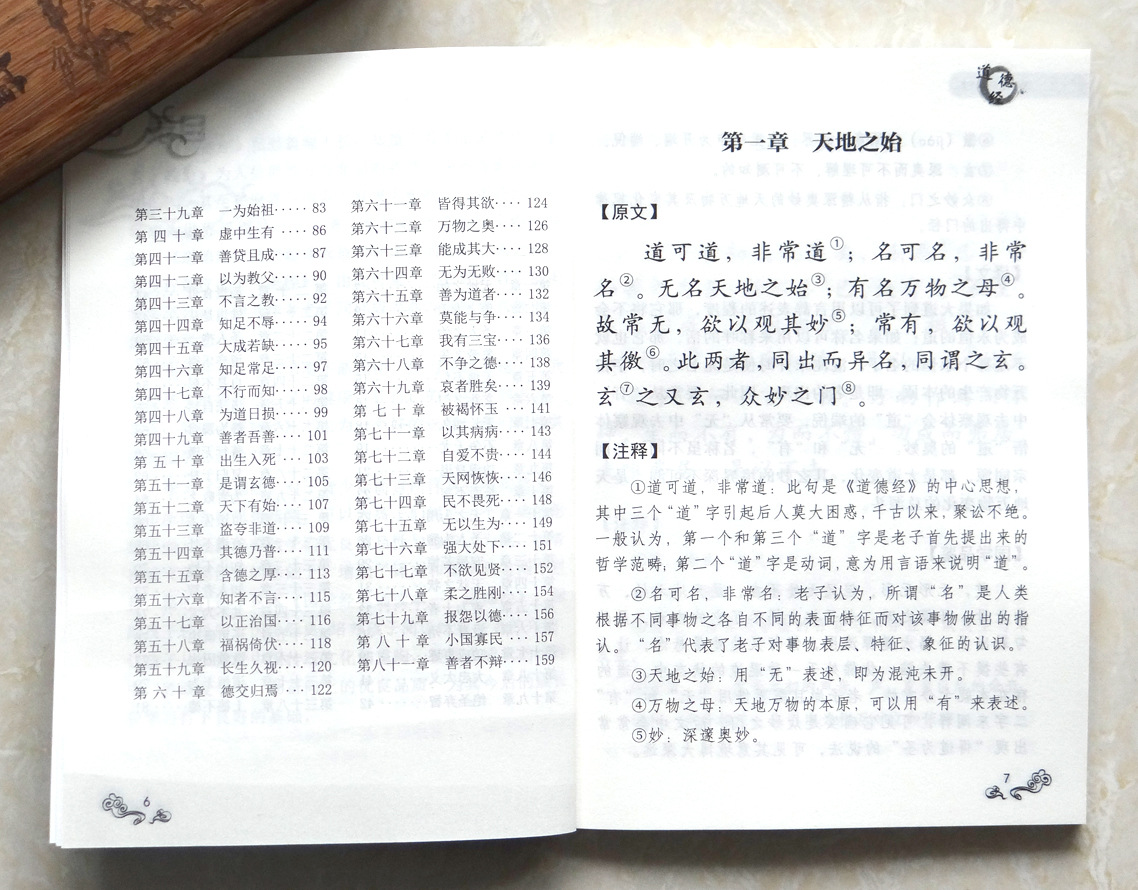 第三十九章 一为始祖····· 83
第四十章 虚中生有 ···· 86
第四十一章 善贷且成···· 87
第四十二章 以为教父···· 90
第四十三章 不言之教···· 92
第四十四章 知足不辱···· 94
第四十五章 大成若缺···· 95
第四十六章 知足常足···· 97
第四十七章 不行而知···· 98
第四十八章 为道日损···· 99
第四十九章 善者吾善···· 101
第五十章 出生入死 ···· 103
第五十一章 是谓玄德···· 105
第五十二章 天下有始···· 107
第五十三章 盗夸非道···· 109
第五十四章 其德乃普···· 111
第五十五章 含德之厚···· 113
第五十六章 知者不言···· 115
第五十七章 以正治国···· 116
第五十八章 福祸倚伏···· 118
第五十九章 长生久视···· 120
第六十章 德交归焉 ···· 122
6
第六十一章 皆得其欲···· 124
第六十二章 万物之奥···· 126
第六十三章 能成其大···· 128
第六十四章 无为无败···· 130
第六十五章 善为道者···· 132
第六十六章 莫能与争···· 134
第六十七章 我有三宝···· 136
第六十八章 不争之德···· 138
第六十九章 哀者胜矣···· 139
第七十章 被褐怀玉 ··· 141
第七十一章 以其病病···· 143
第七十二章 自爱不贵···· 144
第七十三章 天网恢恢···· 146
第七十四章 民不畏死···· 148
第七十五章 无以生为···· 149
第七十六章 强大处下···· 151
第七十七章 不欲见贤···· 152
第七十八章 柔之胜刚···· 154
第七十九章 报怨以德···· 156
第八十章 小国寡民 ··· 157
第八十一章 善者不辩···· 159
道德经
第一章 天地之始
【原文】
道可道，非常道①；名可名，非常
名②。无名天地之始③；有名万物之母④。
故常无，欲以观其妙⑤；常有，欲以观
其徼⑥。此两者，同出而异名，同谓之玄。
玄⑦之又玄，众妙之门⑧。
【注释】
①道可道，非常道：此句是《道德经》的中心思想，
其中三个“道”字引起后人莫大困惑，千古以来，聚讼不绝。
一般认为，第一个和第三个“道”字是老子首先提出来的
哲学范畴；第二个“道”字是动词，意为用言语来说明“道”。
②名可名，非常名：老子认为，所谓“名”是人类
根据不同事物之各自不同的表面特征而对该事物做出的指
认。“名”代表了老子对事物表层、特征、象征的认识。
③天地之始：用“无”表述，即为混沌未开。
④万物之母：天地万物的本原，可以用“有”来表述。
⑤妙：深邃奥妙。
7